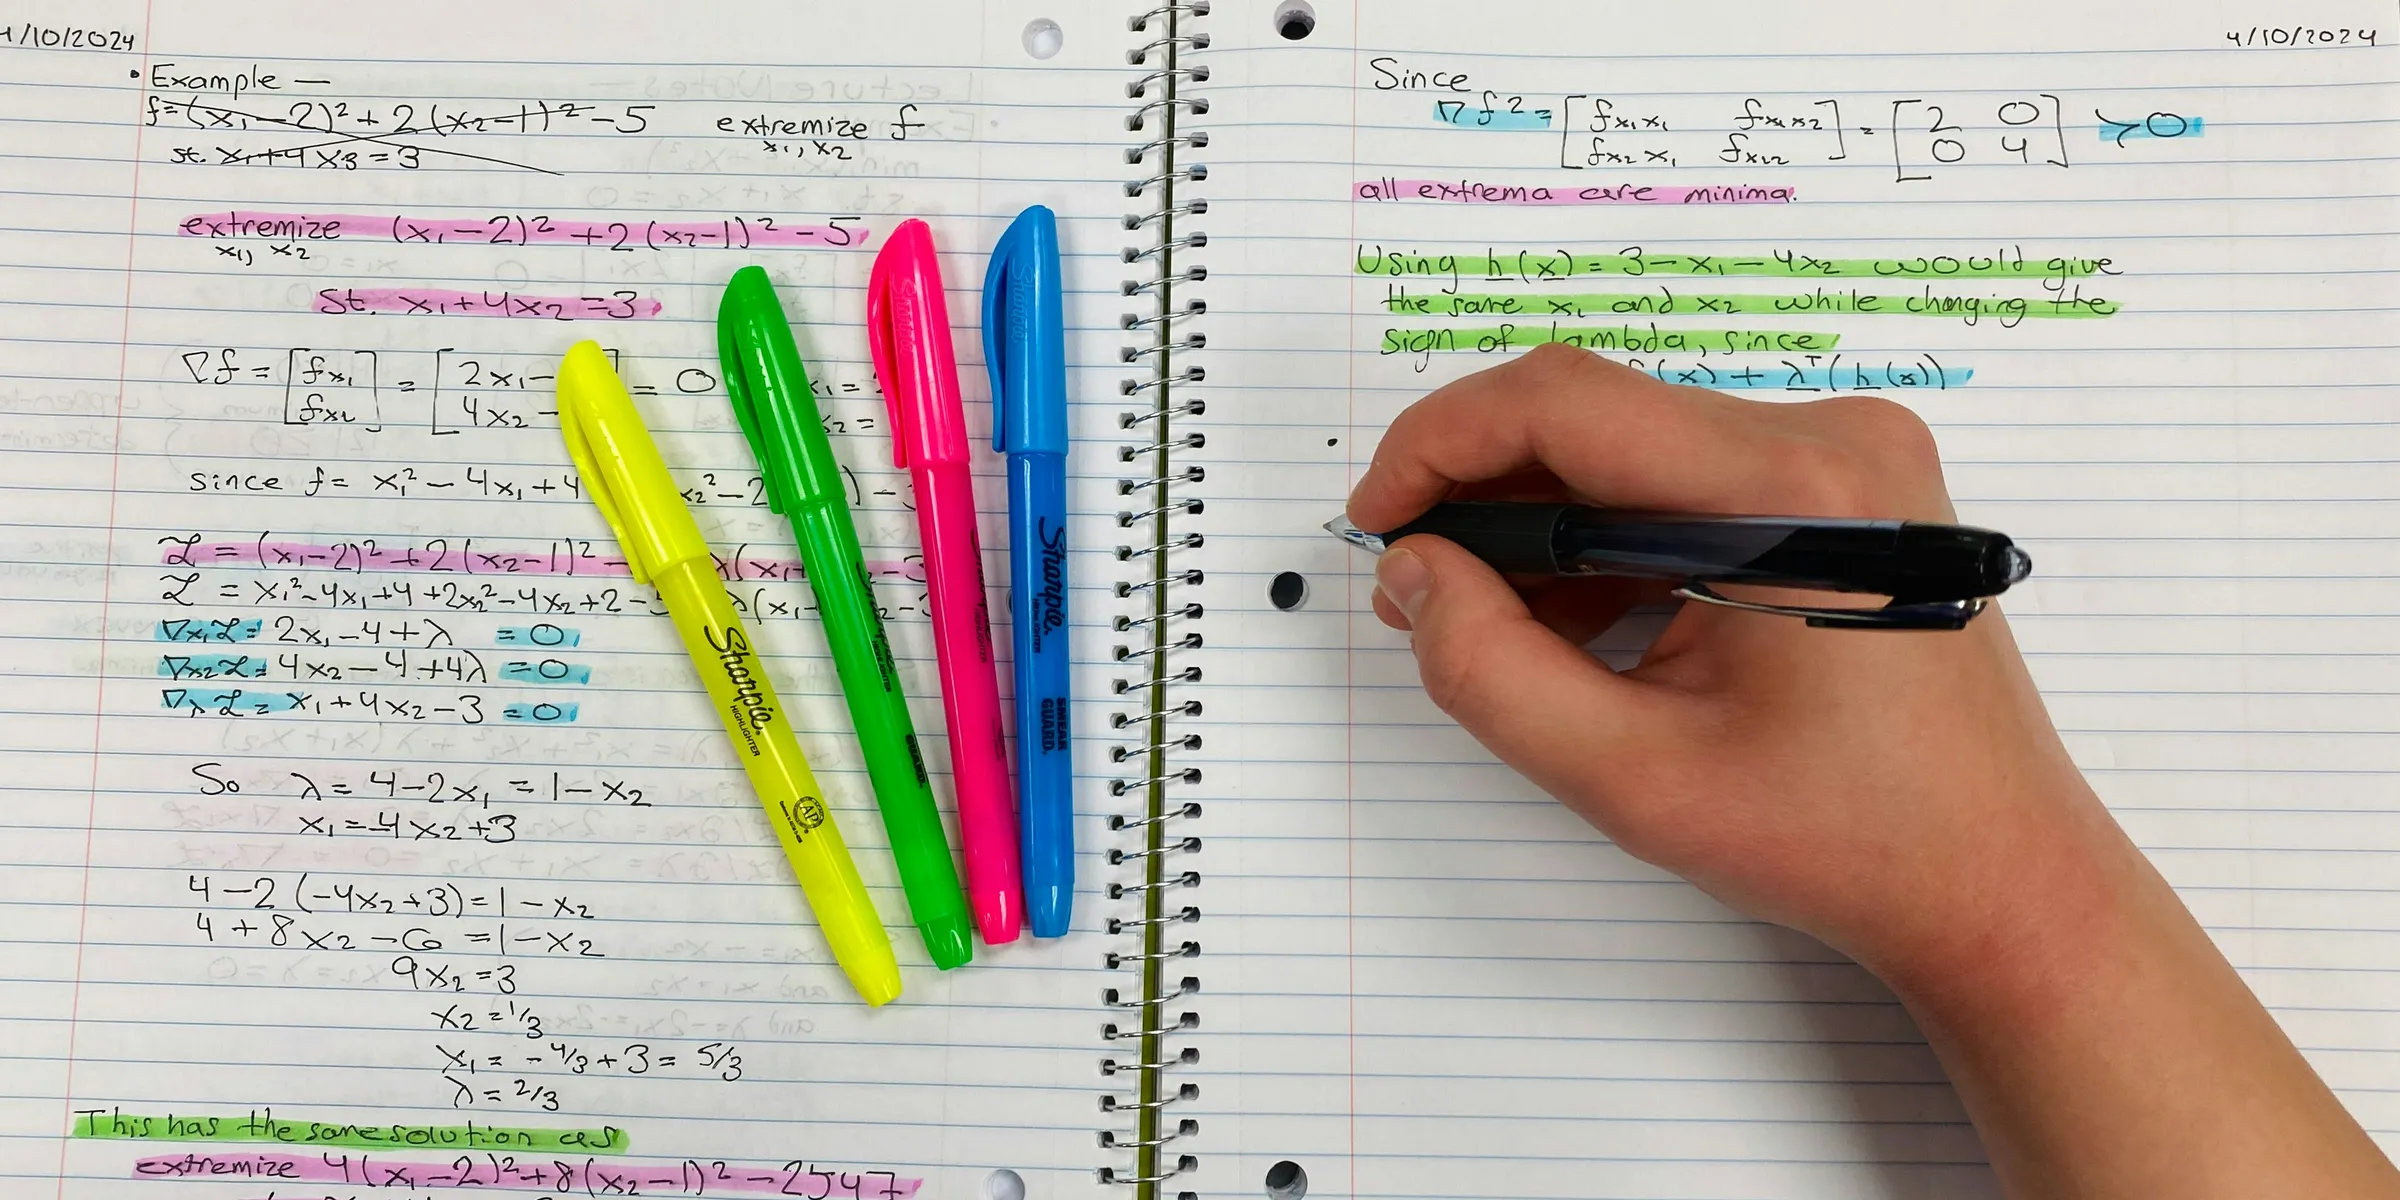 4/10/2024
• Example —
f=(x₁-2)²+2(x₂-1)²-5 extremize f
x₁,x₂
st. x₁+4x3=3
extremize (x₁-2)²+2(x₂-1)²-5
x₁, x₂
st. x₁+4x₂=3
∇f = [fx₁ fx₂] = [2x₁- 4x₂-] = 0 x₁=
x₂=
since f= x₁²-4x₁+4 x₂²-2 ) -
ℒ = (x₁-2)²+2(x₂-1)²- λ(x₁+ -3
ℒ = x₁²-4x₁+4+2x₂²-4x₂+2-5 λ(x₁- x₂-3
∇x₁ℒ= 2x₁-4+λ =0
∇x₂ℒ= 4x₂-4+4λ =0
∇λℒ= x₁+4x₂-3 =0
So λ=4-2x₁ =1-x₂
x₁=-4x₂+3
4-2(-4x₂+3)=1-x₂
4+8x₂-6 =1-x₂
9x₂=3
x₂=1/3
x₁= -4/3+3= 5/3
λ=2/3
This has the same solution as
extremize 4(x₁-2)²+8(x₂-1)²-2547
4/10/2024
Since
∇f2= [fx₁x₁ fx₁x₂ fx₂x₁ fx₂₂] = [2 0 0 4] >0
all extrema are minima.
Using h(x)=3-x₁-4x₂ would give
the same x₁ and x₂ while changing the
sign of lambda, since
(x)+λᵀ(h(x))
•
Sharpie.
HIGHLIGHTER
AP
GUARD.
Sharpie.
SMEAR
GUARD.